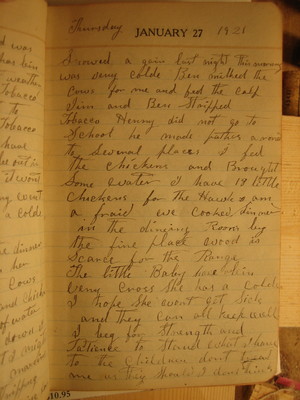 Thursday JANUARY 27 1921
Snowed a gain last night this morning
was very colde Ben milked the
Cows for me and fed the calf
Jim and Ben Stripped
Tobacco Henry did not go to
School he made pathes around
to Several places I fed
the chickens and Brought
Some water I have 19 little
Chickens for the Hawks I am
a fraid we cooked dinner
in the dining Room by
the fire place wood is
Scarce for the Range
The little Baby have bin
very Cross She has a Colde
I hope She wont get Sick
and they can all keep well
I beg for Strength and
Patience to Stand what I have
to the Children dont
me as they should I dont think
10.95